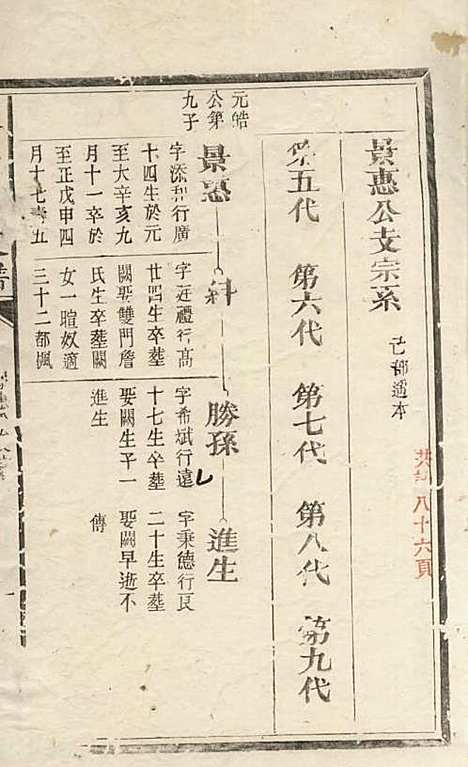 景惠公支宗系
共 八十六頁
第五代 第六代 第七代 第八代 第九代
元皓公第九子
景惠
字添和行廣
十四生於元
至大辛亥九
月十一卒於
至正戊申四
月十七壽五
科
字廷禮行高
廿四生卒葬
闕娶雙門詹
氏生卒葬闕
女一暄奴適
三十二都楓
勝孫
字希斌行遠
十七生卒葬
娶闕生子一
進生
進生
字秉德行良
二十生卒葬
娶闕早逝不
傳